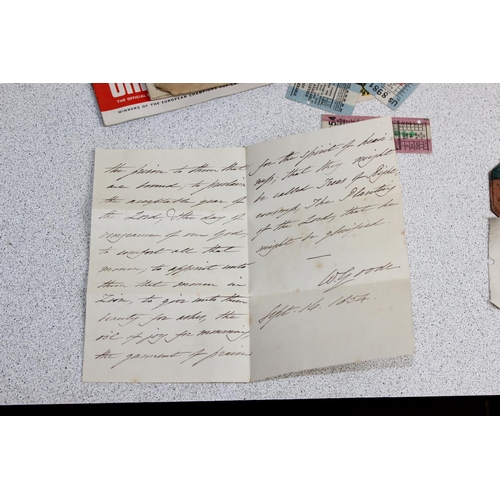 UNI
THE OFFICIAL
WINNERS OF THE EUROPEAN CHAMPIONS CUP
the prison to them that
are bound, to proclaim
the acceptable year of
the Lord, & the day of
vengeance of our God;
to comfort all that
mourn, to appoint unto
them that mourn in
Zion, to give unto them
beauty for ashes, the
oil of joy for mourning,
the garment of praise
for the spirit of heavi
ness; that they might
be called Trees of Right
eousness, The Planting
of the Lord, that he
might be glorified
W. Goode
Sept. 16. 1854.